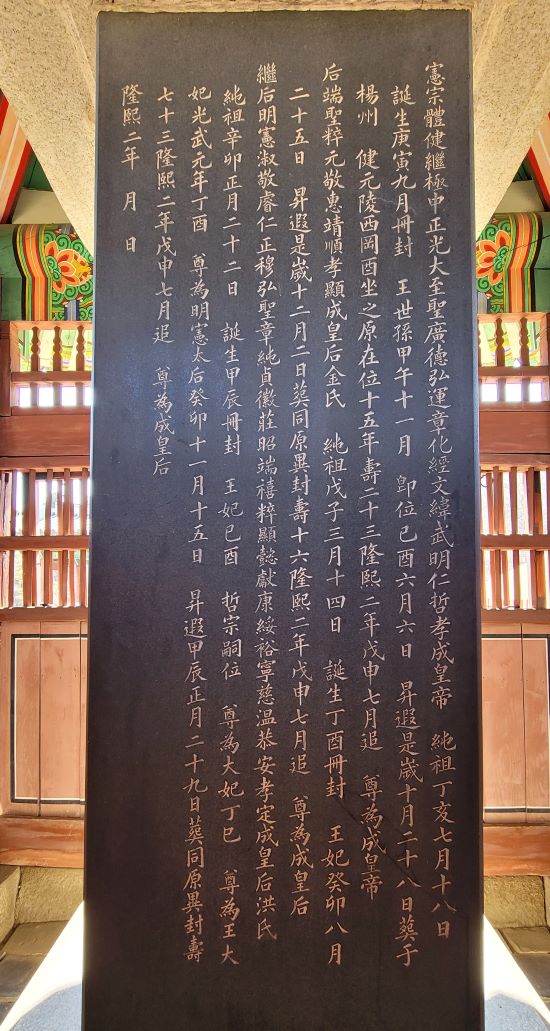 憲宗體健繼極中正光大至聖廣德弘運章化經文緯武明仁哲孝成皇帝 純祖丁亥七月十八日
誕生庚寅九月冊封 王世孫甲午十一月 卽位己酉六月六日 昇遐是歲十月二十八日葬于
楊州 健元陵西岡酉坐之原在位十五年壽二十三隆熙二年戊申七月追 尊為成皇帝
后端聖粹元敬惠靖順孝顯成皇后金氏 純祖戊子三月十四日 誕生丁酉冊封 王妃癸卯八月
二十五日 昇遐是歲十二月二日葬同原異封壽十六隆熙二年戊申七月追 尊為成皇后
繼后明憲淑敬睿仁正穆弘聖章純貞徽莊昭端禧粹顯懿獻康綏裕寧慈溫恭安孝定成皇后洪氏
純祖辛卯正月二十二日 誕生甲辰冊封 王妃己酉 哲宗嗣位 尊為大妃丁巳 尊為王大
妃光武元年丁酉 尊為明憲太后癸卯十一月十五日 昇遐甲辰正月二十九日葬同原異封壽
七十三隆熙二年戊申七月追 尊為成皇后
隆熙二年 月 日